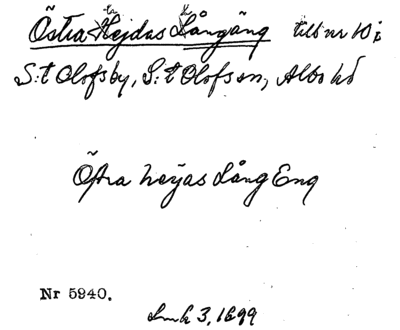 Östra Hejdas Långäng till nr 10 i
S:t Olofsby, S:t Olofs sn, Albo hd
Östra heijas Lång Eng
Nr 5940.
Lmk 3, 1699